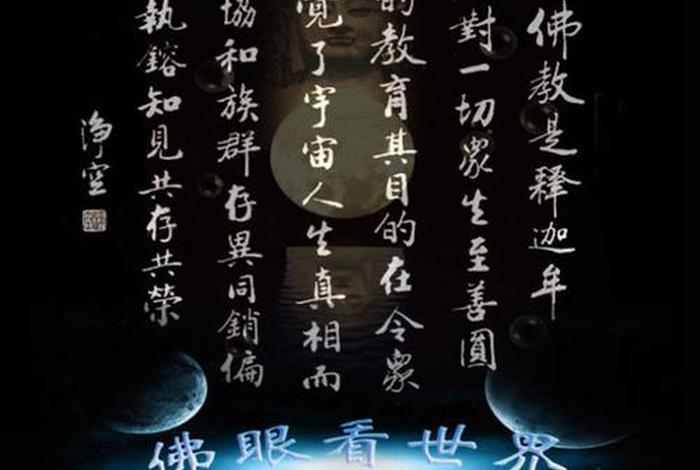 佛教是釋迦牟
對一切眾生至善圓
的教育其目的在令眾
覺了宇宙人生真相而
協和族群存異同銷偏
執鎔知見共存共榮
淨空
佛眼看世界